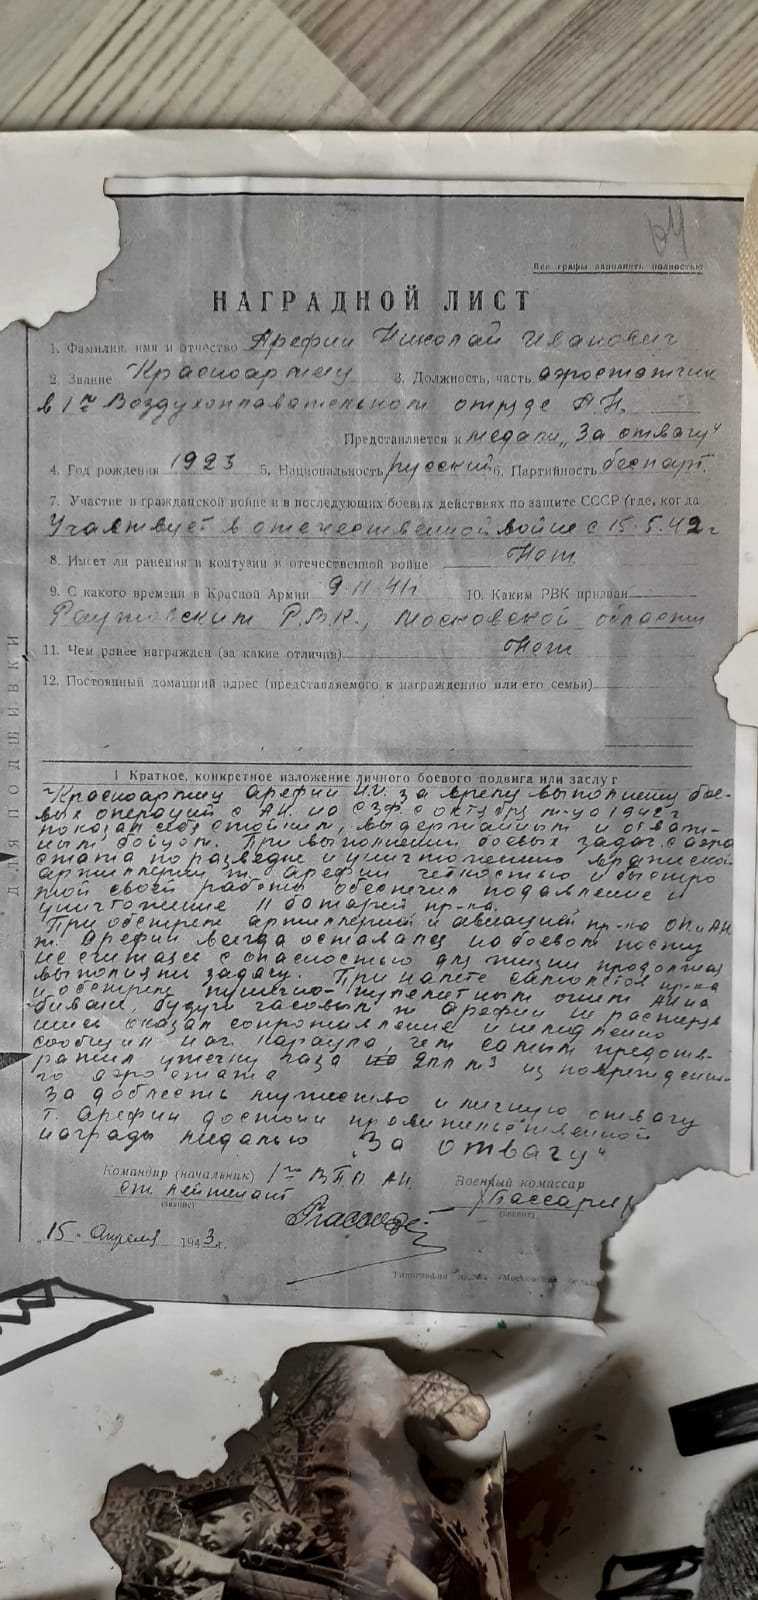 Все графы заполнить полностью
НАГРАДНОЙ ЛИСТ
1. Фамилия, имя и отчество Арефин Николай Иванович
2 Звание Красноармеец 3. Должность, часть аэростатчик
в 1м Воздухоплавательном отряде А.Н.
Представляется к медали „За отвагу“
4. Год рождения 1923 5. Национальность русский 6. Партийность беспарт.
7. Участие в гражданской войне и в последующих боевых действиях по защите СССР (где, когда
Участвует в отечественной войне с 15.5.42 г
8. Имеет ли ранения и контузии в отечественной войне Нет
9. С какого времени в Красной Армии 9.11.41г 10. Каким РВК призван
Р.В.К., Московской области
11. Чем ранее награжден (за какие отличия) Нет
12. Постоянный домашний адрес (представляемого к награждению или его семьи)
ДЛЯ ПОДШИВКИ
I Краткое, конкретное изложение личного боевого подвига или заслуг
Красноармеец Арефин Н.И. за время выполнения бое-
вых операций с АН. на СЗФ с октября м-ца 1942 г
показал себя стойким, выдержанным и отваж-
ным бойцом. При выполнении боевых задач с аэро
стата по разведке и уничтожению вражеской
артиллерии т. Арефин четкостью и быстро
той своей работы обеспечил подавление и
уничтожение 11 батарей пр-ка.
При обстреле артиллерией и авиацией пр-ка АН.
т. Арефин всегда оставался на боевом посту
не считаясь с опасностью для жизни продолжал
выполнять задачу. При налете самолетов пр-ка
и обстреле пушечно-пулеметным огнем АН на
биваке, будучи часовым т Арефин не растеряв
шись оказал сопротивление и немедленно
сообщил нач. караула, чем самым предотв-
ратил утечку газа м³ из поврежденно-
го аэростата
За доблесть мужество и личную отвагу
т. Арефин достоин правительственной
награды медалью „За отвагу“
Командир (начальник) 1го А.Н. Военный комиссар
ст. лейтенант
(звание) (звание)
„15“ Апреля 1943 г.
Типография